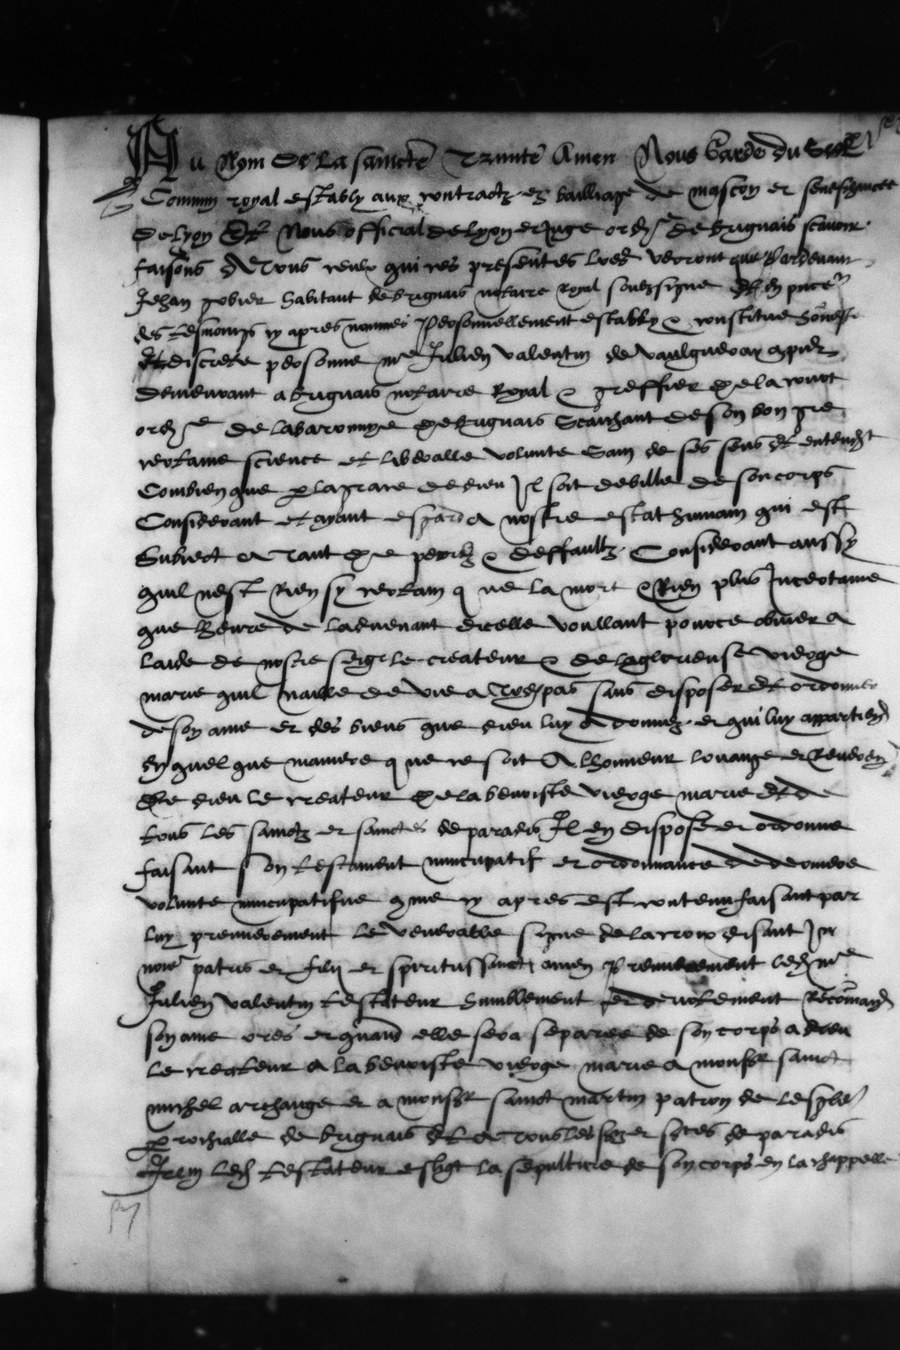 Au Nom de la saincte Trinite Amen Nous Garde du Seel
Commun royal estably aux contractz es bailliage de mascon et seneschaucee
De Lyon Et Nous official de Lyon et Juge ord de brignais scavoir
faisons A tous ceulx qui ces presentes lres verront que Pardevant
Jehan gobier habitant de brignais notaire Royal soubzsigne Et en pnce
des tesmoings cy apres nommes Personnellement estably & constitue
Et discrete personne me Julien Valentin de
Demeurant a brignais notaire Royal & greffier de la court
ord de la baronnye de brignais Scaichant de son bon gre
certaine science et liberalle volunte Sain de ses sens et entendt
Combien que p la grace de dieu Il soit debille de son corps
Considerant et ayant esgard A nostre estat humain qui est
Subiect A tant de perilz & deffaultz Considerant aussy
quil nest Rien sy certain q ne la mort & Rien plus Incertaine
que lheure de ladvenant dicelle Voullant pource obvier a
laide de nostre seigr le createur & de la glorieuse vierge
marie quil naille de vie a trespas sans disposer Et ordonner
de son ame et des biens que dieu luy a donnez et qui luy appartien
En quelque maniere q ne ce soit A lhonneur louange et Reveren
De dieu le createur de la benoiste vierge marie Et de
tous les sainctz et sainctes de paradis Il en dispose et ordonne
faisant son testament nuncupatif et ordonnance de derniere
volunte nuncupatifve qme cy apres est contenu faisant par
luy premierement le venerable signe de la croix disant In
noie patris et filii et spiritussancti amen Premierement led me
Julien Valentin testateur humblement et devotement Recomand
son ame ores et quand elle sera separee de son corps a dieu
le createur A la benoiste vierge marie A monsr sainct
michel archange et a monsr sainct martin patron de lesglise
p rochialle de brignais Et A tous les sctz et sctes de paradis
Item led testateur eslyt la sepulture de son corps en la chappelle